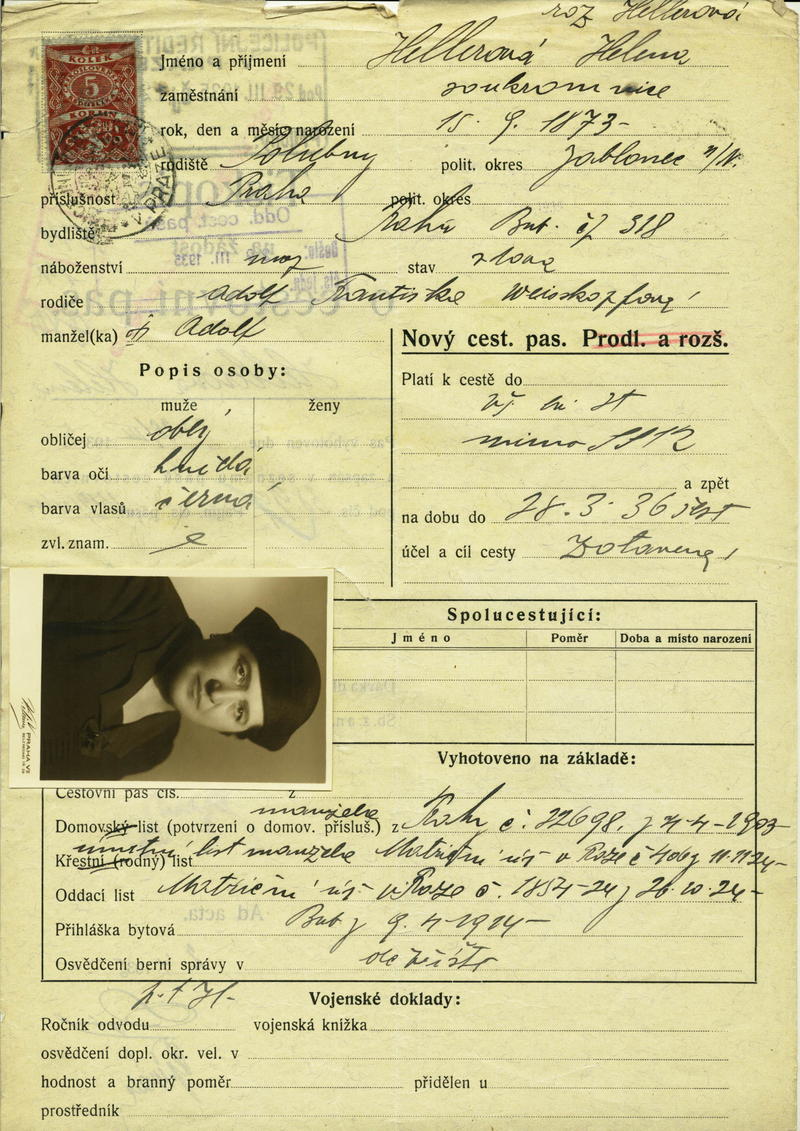 roz Hellerová
KOLEK
5
KORUN
V PRAZE
Jméno a příjmení Hellerová Helena
zaměstnání soukromnice
rok, den a měsíc narození 15. 9. 1873-
rodiště polit. okres Jablonec n/N.
příslušnost Praha polit. okres
bydliště Praha Bub. čj 318
náboženství moj stav vdova
rodiče Adolf Františka Weisskopfová
manžel(ka) Adolf
Nový cest. pas. Prodl. a rozš.
Popis osoby:
Platí k cestě do
muže ženy
obličej oblý
mimo SSSR
barva očí hnědá
a zpět
barva vlasů černá
na dobu do 28. 3. 36
zvl. znam.
účel a cíl cesty Zotavená
Spolucestující:
Jméno Poměr Doba a místo narození
PRAHA VII
Vyhotoveno na základě:
Cestovní pas čís. z
manžela
Domovský list (potvrzení o domov. přísluš.) z Prahy č. 22698. z 4-4-1903
úmrtní list manžela Matriční úř v Praze č 406 z 11.11.24-
Křestní (rodný) list
Oddací list Matriční úř v Praze č. 1854-24 z 26.10.24-
Přihláška bytová Bub z 9.4-1914-
Osvědčení berní správy v
Vojenské doklady:
Ročník odvodu vojenská knížka
osvědčení dopl. okr. vel. v
hodnost a branný poměr přidělen u
prostředník